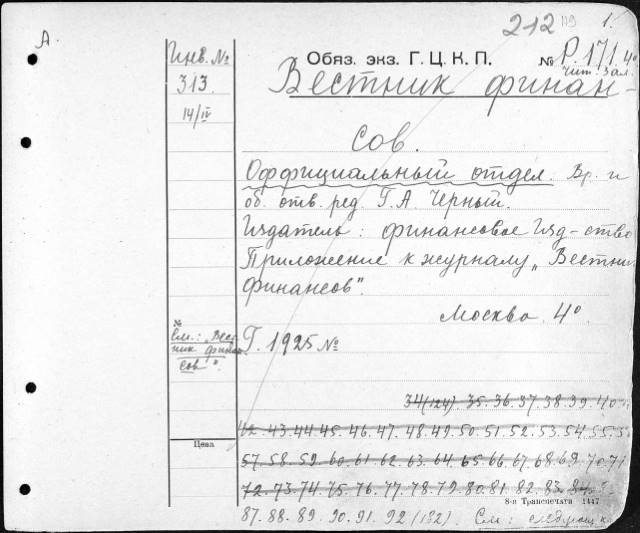 212 119 1.
А
Инв. №
313.
14/IV
Обяз. экз. Г. Ц. К. П. № Р. 171.4°
чит. зал.
Вестник финан-
сов.
Оффициальный отдел. Вр. и
об. отв. ред. Г. А. Черный.
Издатель: финансовое Изд-ство
Приложение к журналу „Вестник
финансов".
Москва. 4°
№
См.: „Вест-
ник финан-
сов".
Г. 1925 №
34(124). 35. 36. 37. 38. 39. 40.
42. 43. 44. 45. 46. 47. 48. 49. 50. 51. 52. 53. 54. 55.
Цена
57. 58. 59. 60. 61. 62. 63. 64. 65. 66. 67. 68. 69. 70. 71
72. 73. 74. 75. 76. 77. 78. 79. 80. 81. 82. 83. 84.
8-я Транспечати 1447
87. 88. 89. 90. 91. 92 (182). См.: следующ. к